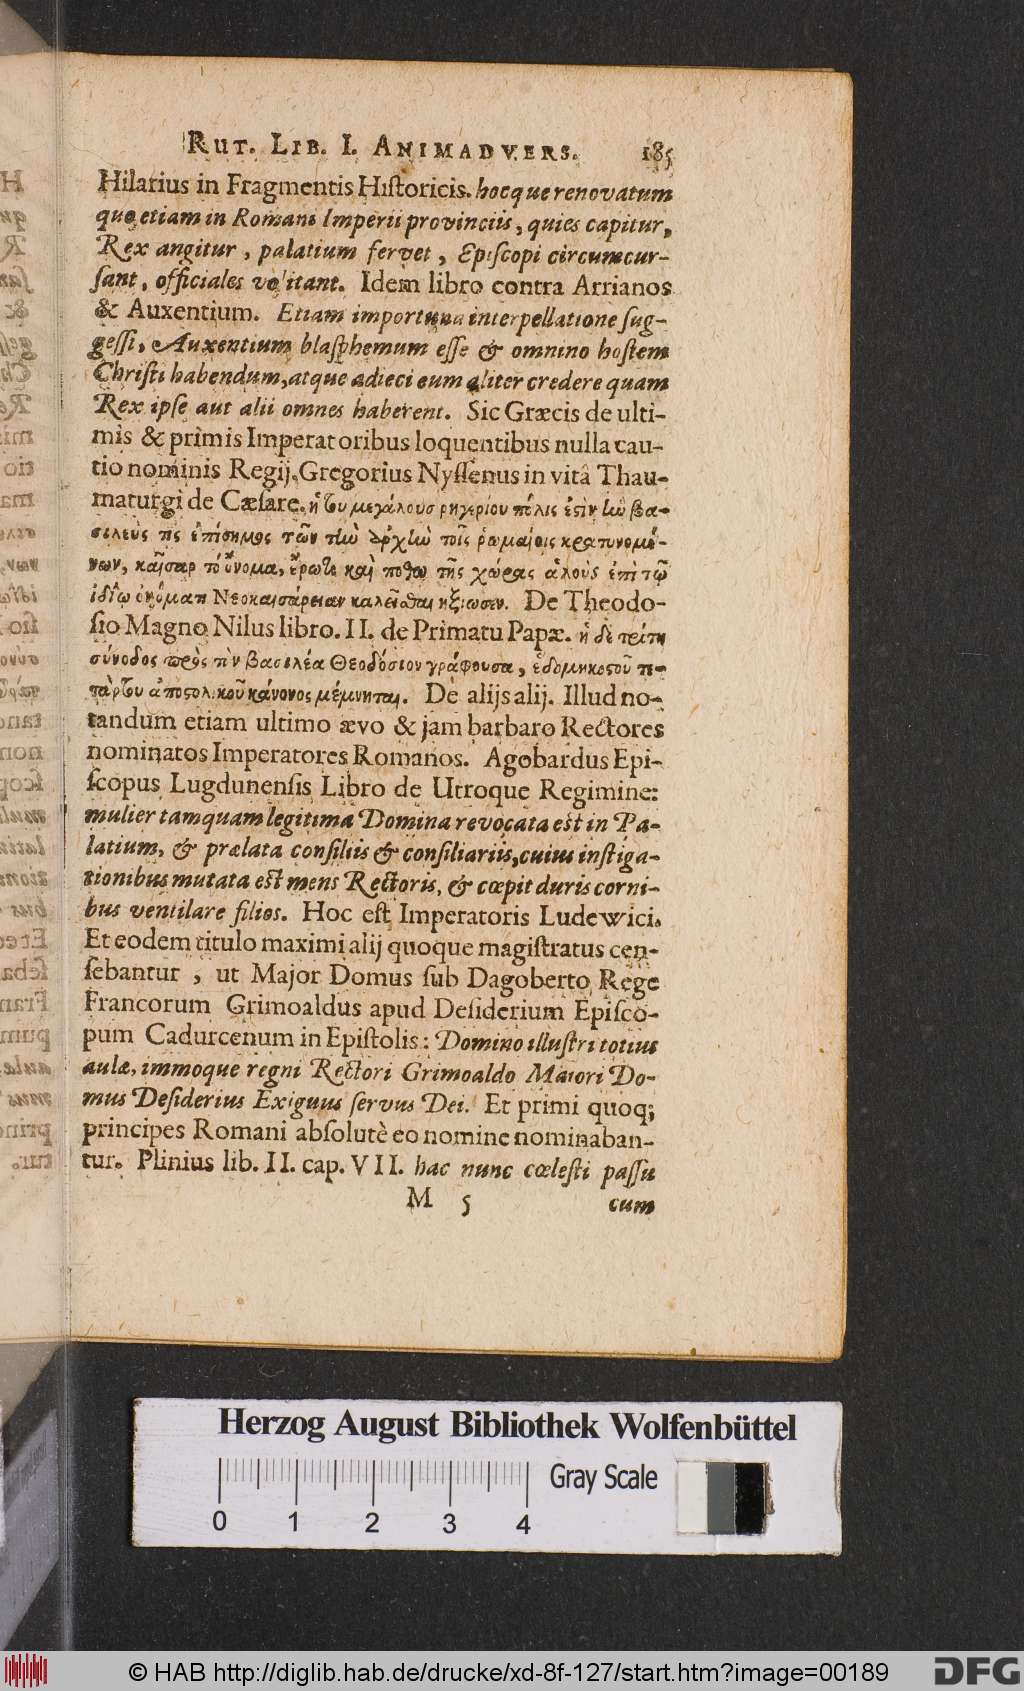 RUT. LIB. I. ANIMADVERS. 185
Hilarius in Fragmentis Historicis. hocque renovatum
quo etiam in Romani Imperii provinciis, quies capitur,
Rex angitur, palatium fervet, Episcopi circumcur-
sant, officiales volitant. Idem libro contra Arrianos
& Auxentium. Etiam importuna interpellatione sug-
gessi, Auxentium blasphemum esse & omnino hostem
Christi habendum, atque adieci eum aliter credere quam
Rex ipse aut alii omnes haberent. Sic Græcis de ulti-
mis & primis Imperatoribus loquentibus nulla cau-
tio nominis Regij. Gregorius Nyssenus in vitâ Thau-
maturgi de Cæsare. ἡ τοῦ μεγάλου πόλις ἐστὶν ἣν βα-
σιλεὺς τις ἐπίσημος τῶν τὴν ἀρχὴν τοῖς ῥωμαίοις κρατυνομέ-
νων, καῖσαρ τοὔνομα, ἔρωτι καὶ πόθῳ τῆς χώρας ἁλοὺς ἐπὶ τῷ
ἰδίῳ ὀνόματι Νεοκαισάρειαν καλεῖσθαι ἠξίωσεν. De Theodo-
sio Magno Nilus libro. II. de Primatu Papæ. ἡ δὲ τρίτη
σύνοδος πρὸς τὸν βασιλέα Θεοδόσιον γράφουσα, ἑβδομηκοστοῦ τε-
τάρτου ἀποστολικοῦ κάνονος μέμνηται. De alijs alij. Illud no-
tandum etiam ultimo ævo & jam barbaro Rectores
nominatos Imperatores Romanos. Agobardus Epi-
scopus Lugdunensis Libro de Utroque Regimine:
mulier tamquam legitima Domina revocata est in Pa-
latium, & prælata consiliis & consiliariis, cuius instiga-
tionibus mutata est mens Rectoris, & cœpit duris corni-
bus ventilare filios. Hoc est Imperatoris Ludewici.
Et eodem titulo maximi alij quoque magistratus cen-
sebantur, ut Major Domus sub Dagoberto Rege
Francorum Grimoaldus apud Desiderium Episco-
pum Cadurcenum in Epistolis: Domino illustri totius
aulæ, immoque regni Rectori Grimoaldo Maiori Do-
mus Desiderius Exiguus servus Dei. Et primi quoq;
principes Romani absolutè eo nomine nominaban-
tur. Plinius lib. II. cap. VII. hac nunc cœlesti passu
M 5 cum
Herzog August Bibliothek Wolfenbüttel
Gray Scale
0 1 2 3 4
© HAB http://diglib.hab.de/drucke/xd-8f-127/start.htm?image=00189
DFG